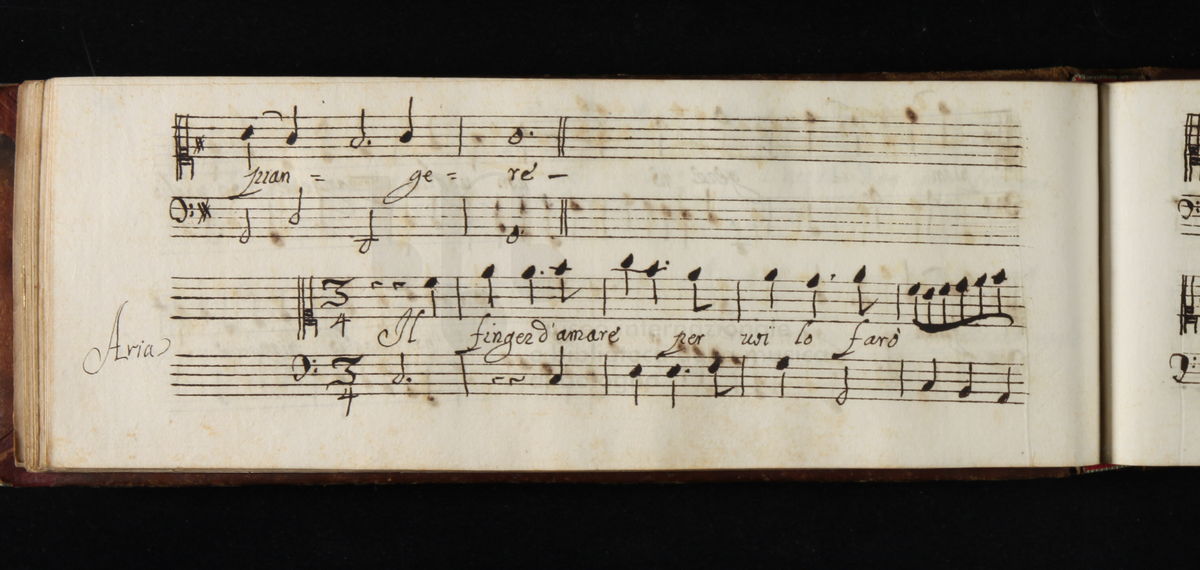 pian = ge = re –
3 4
Il finger d'amare per voi lo farò
Aria
3 4